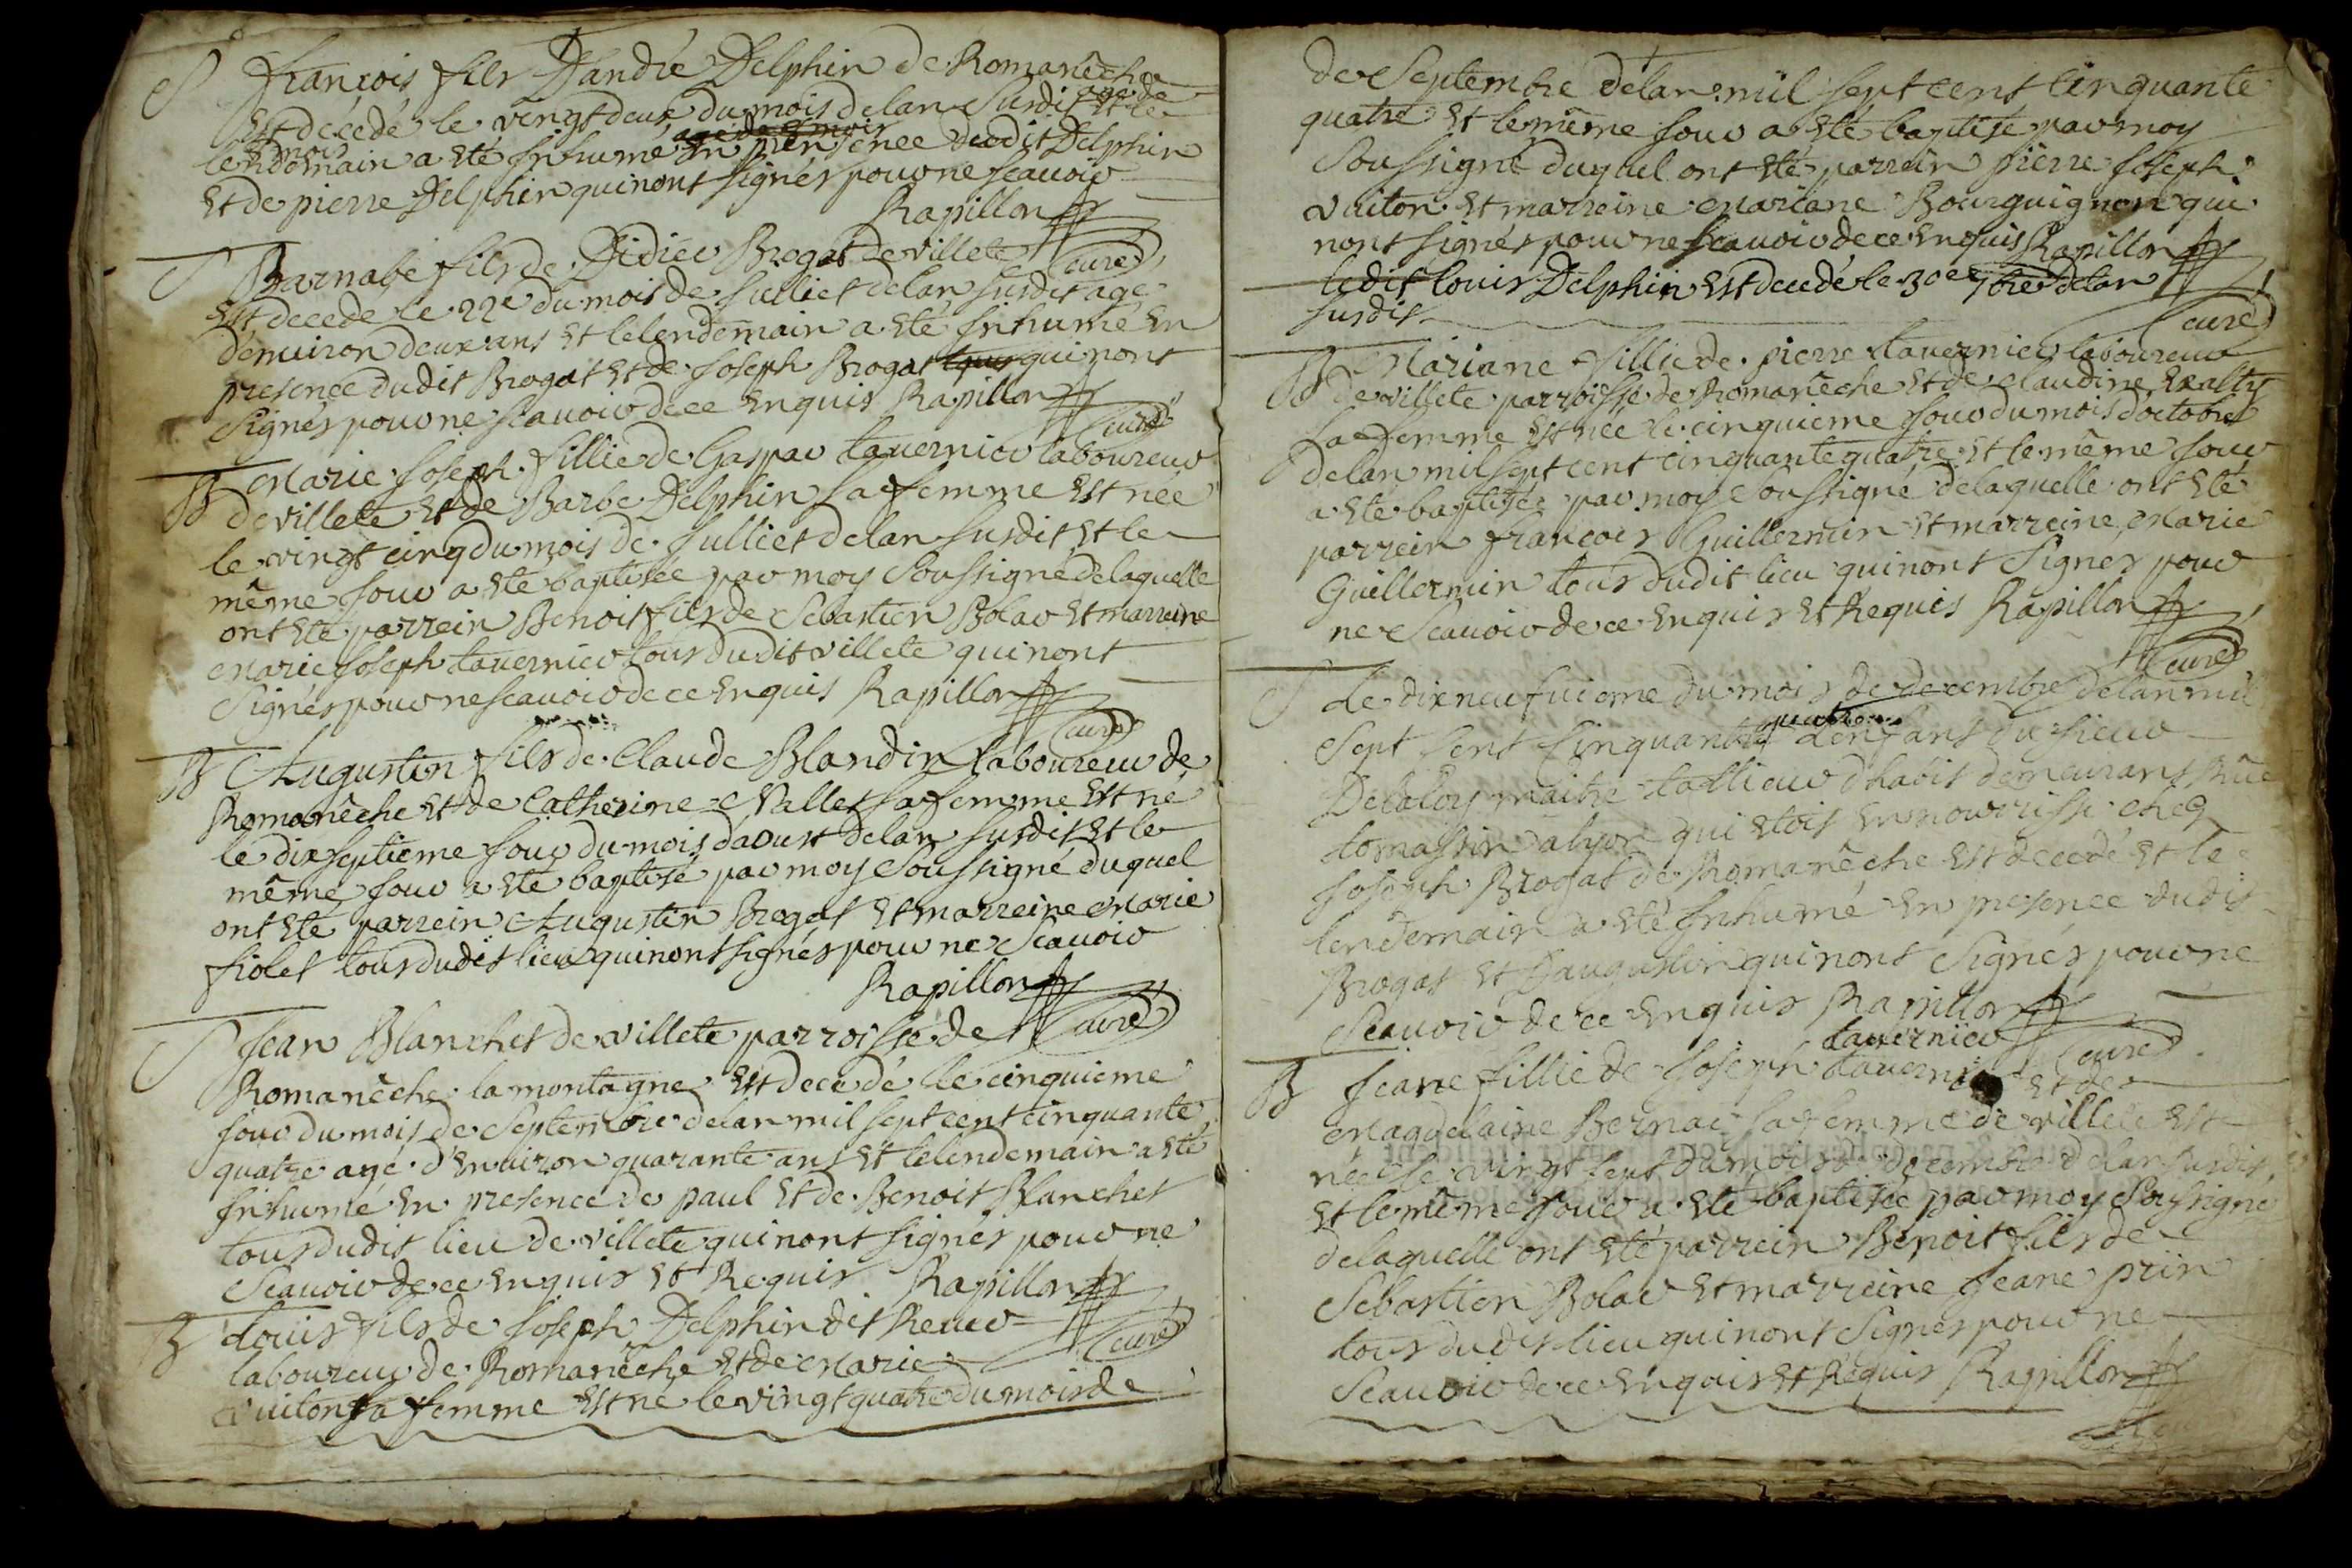 S François fils D'andré Delphin de Romanêche
est decedé le vingt deux du mois de lan Susdit et le
age de
mois
lendomain a eté Inhumé en presence dudit Delphin
et de pierre Delphin qui nont signés pour ne scauoir
Rapillon
curé
S Barnabé fils de Didier Brogat de villete
est decede le 22e du mois de Julliet de lan susdit age
denuiron deux ans et le lendemain a eté Inhumé en
presence dudit Brogat et de Joseph Brogat qui nont
signés pour ne scauoir de ce enquis Rapillon
curé
B Marie Joseph fillie de Gaspar tauernier laboureur
de villete et de Barbe Delphin sa femme est née
le vingt cinq du mois de Julliet de lan susdit et le
même jour a eté baptisée par moy Soussigné de laquelle
ont eté parrein Benoit fils de Sebastien Bolar et marreine
Marie Joseph tauernier tous dudit villete qui nont
Signés pour ne scauoir de ce enquis Rapillon
curé
B Augustin fils de Claude Blandin laboureur de
Romanêche et de Catherine Vallet sa femme est né
le dix septieme jour du mois daoust de lan susdit et le
même jour a eté baptisé par moy Soussigné duquel
ont eté parrein Augustin Brogat et marreine Marie
fiolet tous dudit lieu qui nont signés pour ne Scauoir
Rapillon
curé
S Jean Blanchet de villete parroisse de
Romanêche la montagne est decedé le cinquieme
jour du mois de Septembre de lan mil sept cent cinquante
quatre agé d'enuiron quarante ans et le lendemain a eté
Inhumé en presence de paul et de Benoit Blanchet
tous dudit lieu de villete qui nont signés pour ne
Scauoir de ce enquis et Requis Rapillon
curé
B Louis fils de Joseph Delphin dit Reuer
laboureur de Romanêche et de Marie
Vuiton sa femme est né le vingt quatre du mois de
de Septembre de lan mil sept cent cinquante
quatre et le même jour a eté baptisé par moy
Soussigné duquel ont eté parrein pierre Joseph
Vuiton et marreine Mariane Bourguignon qui
nont signés pour ne scauoir de ce enquis Rapillon
curé
ledit louis Delphin est decedé le 30e 7bre de lan
susdit
B Mariane fillie de pierre tauernier laboureur
de villete parroisse de Romanêche et de Claudine
sa femme est née le cinquieme jour du mois doctobre
de lan mil sept cent cinquante quatre et le même jour
a eté baptisée par moy Soussigné de laquelle ont eté
parrein francois Guillermin et marreine Marie
Guillermin tous dudit lieu qui nont Signés pour
ne Scauoir de ce enquis et Requis Rapillon
curé
S Le dix neufuieme du mois de decembre de lan mil
Sept Cent Cinquante quatre denfant du sieur
Delaloy maitre tallieur dhabit demeurant Rüe
tomassin a lyon qui etoit en nourrisse cheq
Joseph Brogat de Romanêche est decedé et le
lendemain a eté Inhumé en presence dudit
Brogat et D'augustin qui nont Signés pour ne
Scauoir de ce enquis Rapillon
curé
tauernier
B Jeane fillie de Joseph et de
Magdelaine Bernar sa femme de villete est
née le vingt sept du mois de decembre de lan susdit
et le même jour a eté baptisée par moy Soussigné
de laquelle ont eté parrein Benoit fils de
Sebastien Bolar et marreine Jeane prin
tous dudit lieu qui nont Signés pour ne
Scauoir de ce enquis et Requis Rapillon